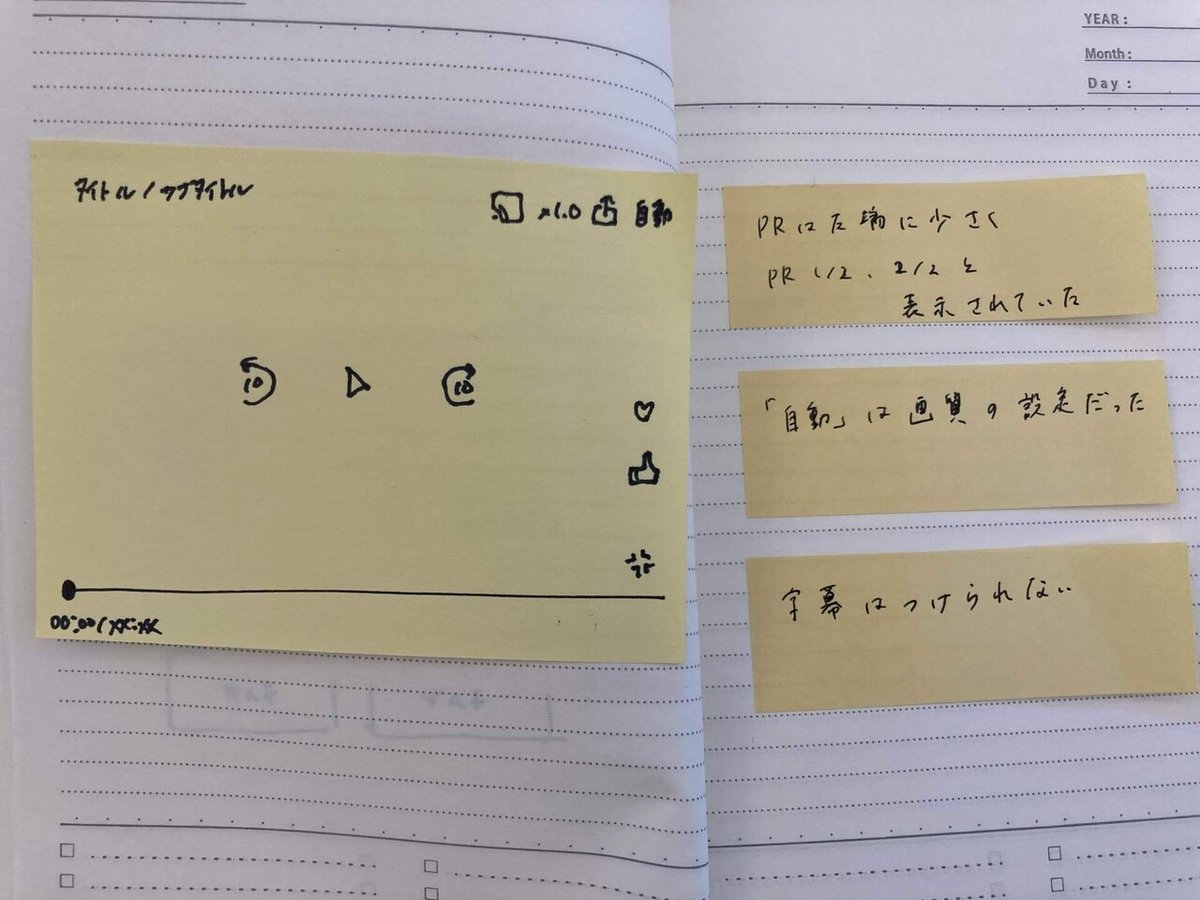 タイトル/サブタイトル
x1.0 自動
10 10
00:00/xx:xx
YEAR :
Month :
Day :
PRは左端に少さく
PR 1/2、2/2と
表示されていた
「自動」は画質の設定だった
字幕はつけられない